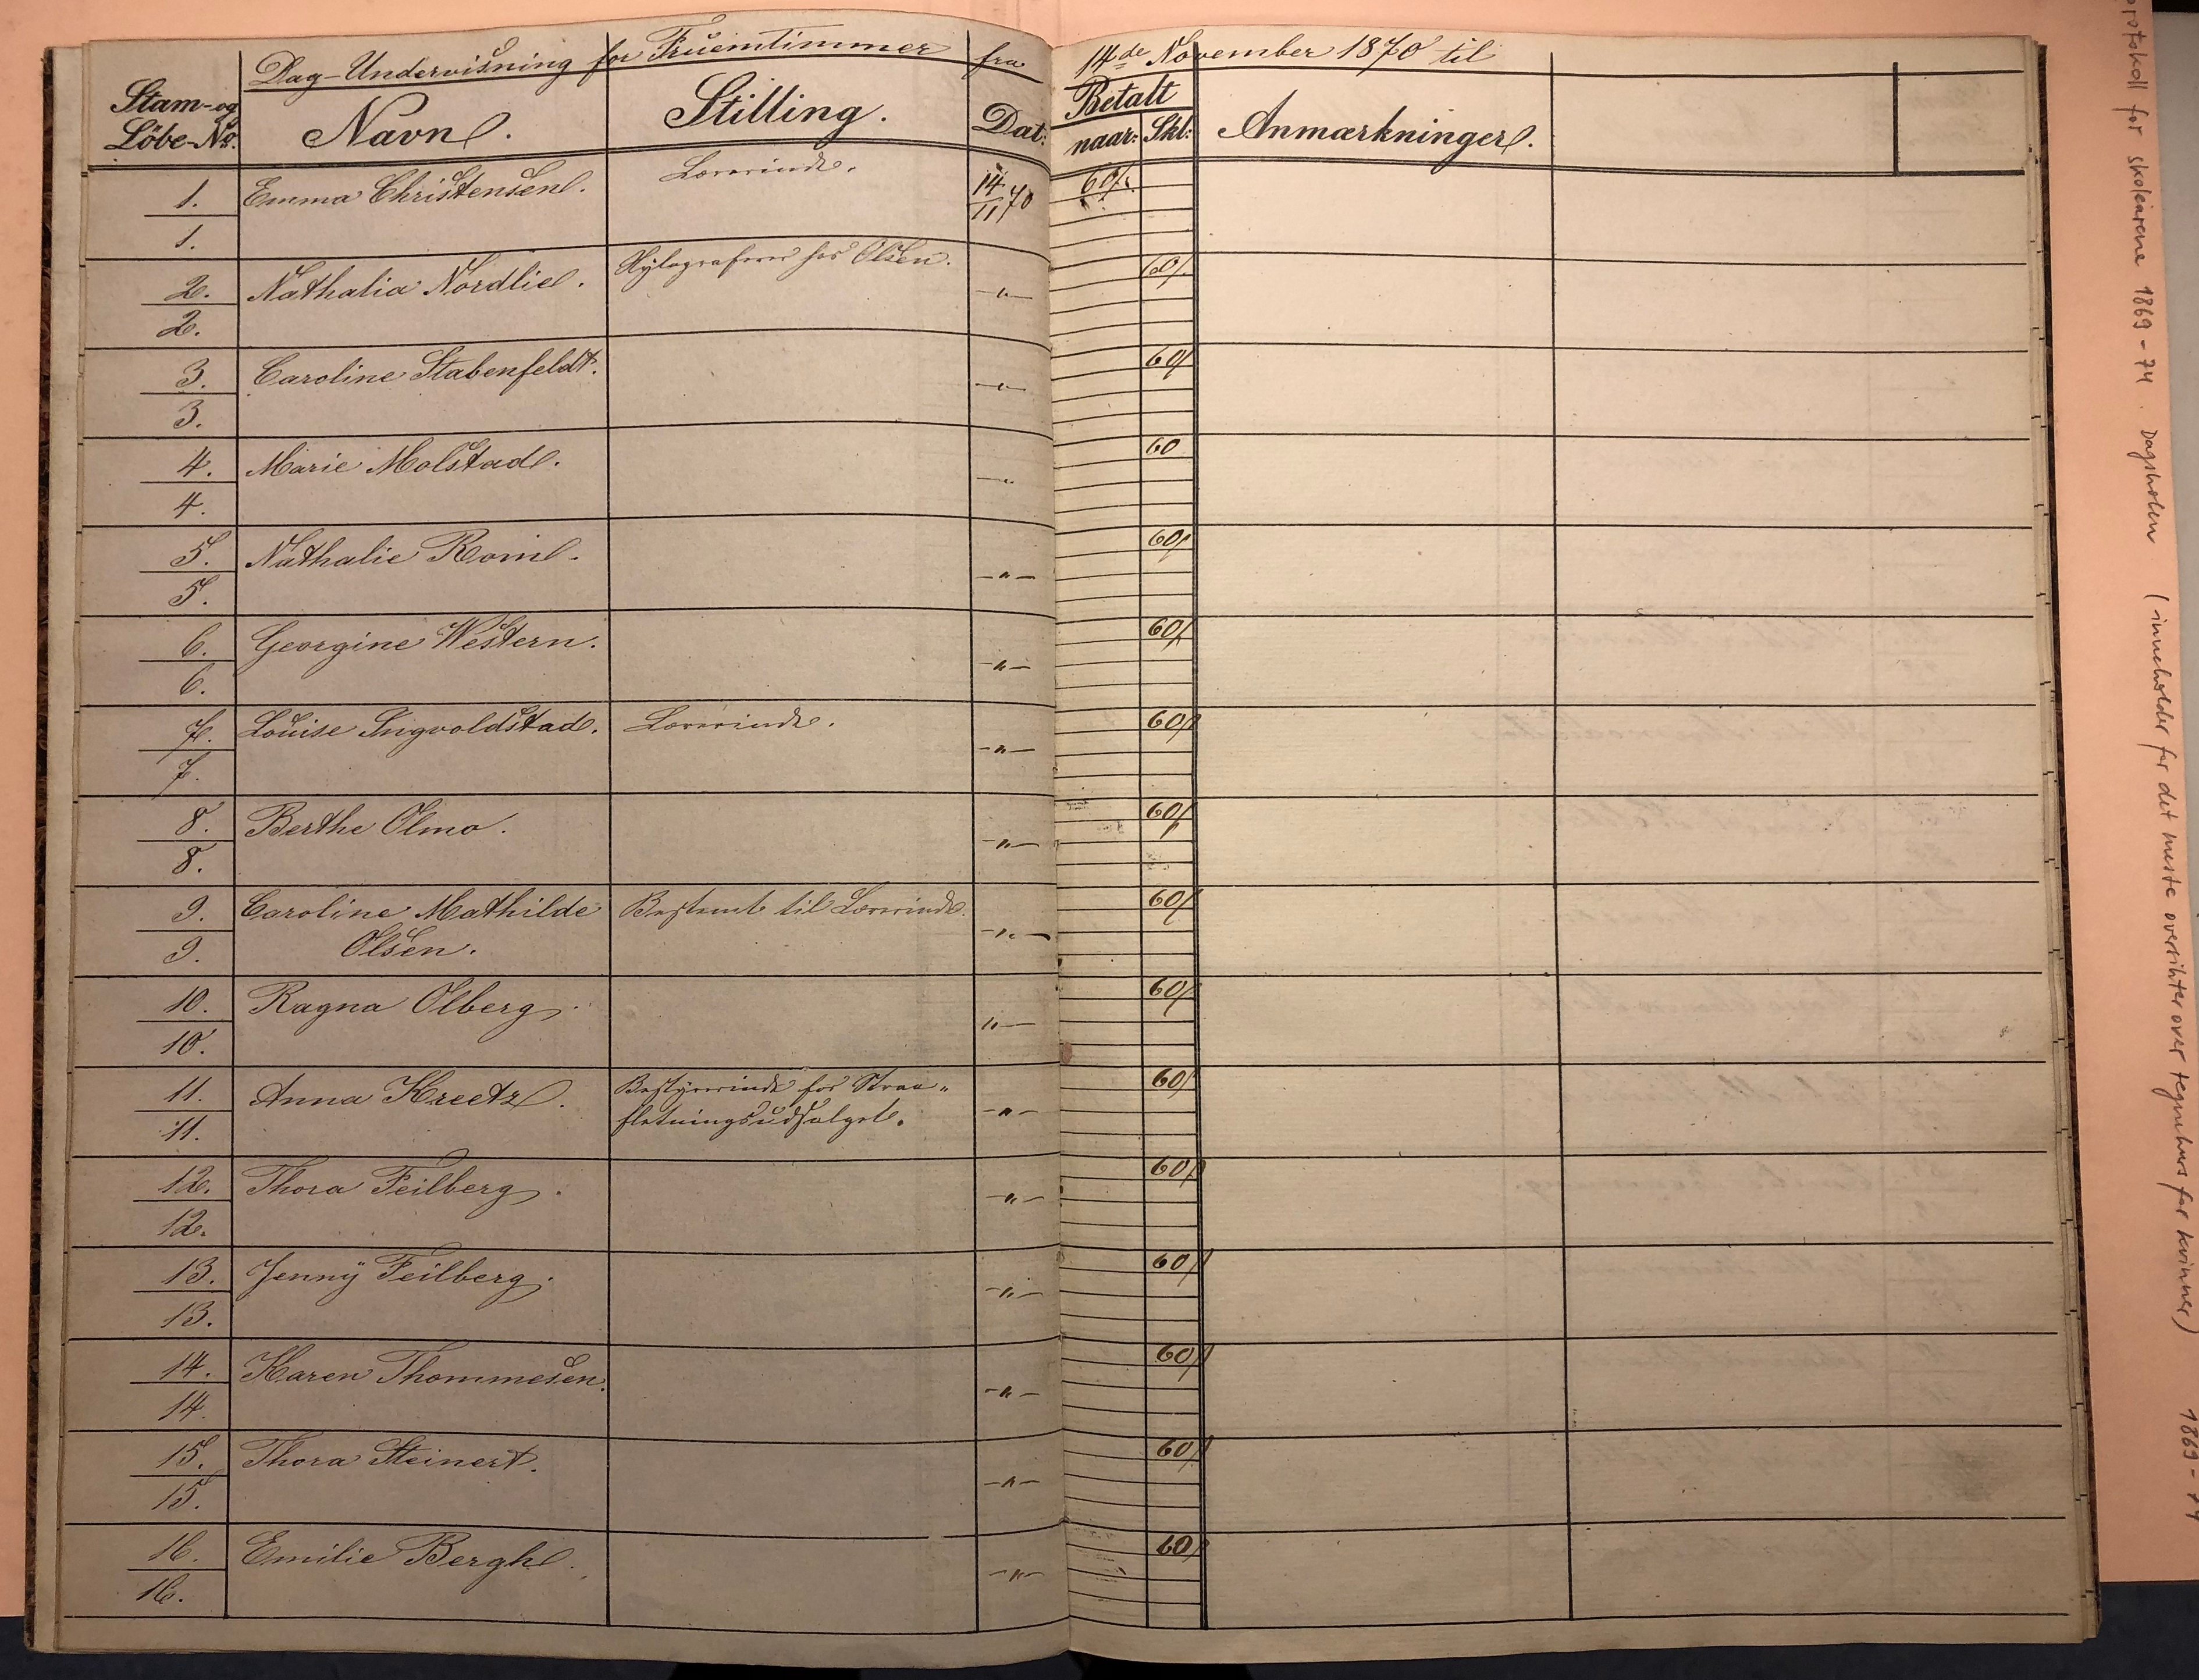 Dag-Undervisning for Fruentimmer fra 14de November 1870 til
Stam- og Löbe-No. Navn. Stilling. Dat: Betalt naar: Skl: Anmærkninger.
1. Emma Christensen. Lærerinde. 14/11 70 60/
1.
2. Nathalia Nordlie. Xylograferer hos Olsen. -"- 60/
2.
3. Caroline Stabenfeldt. -"- 60/
3.
4. Marie Molstad. -"- 60
4.
5. Nathalie Rom. -"- 60/
5.
6. Georgine Western. -"- 60/
6.
7. Louise Ingvoldstad. Lærerinde. -"- 60/
7.
8. Berthe Olmo. -"- 60/
8.
9. Caroline Mathilde Bestemt til Lærerinde. -"- 60/
9. Olsen.
10. Ragna Olberg. "- 60/
10.
11. Anna Kreetz. Bestyrerinde for Straa- -"- 60/
11. fletningsudsalget.
12. Thora Feilberg. -"- 60/
12.
13. Jenny Feilberg. -"- 60/
13.
14. Karen Thommesen. -"- 60/
14.
15. Thora Steinert. -"- 60/
15.
16. Emilie Bergh. -"- 60/
16.
protokoll for skoleårene 1869-74. Dagskolen (inneholder for det meste oversikter over tegnekurs for kvinner) 1869-74